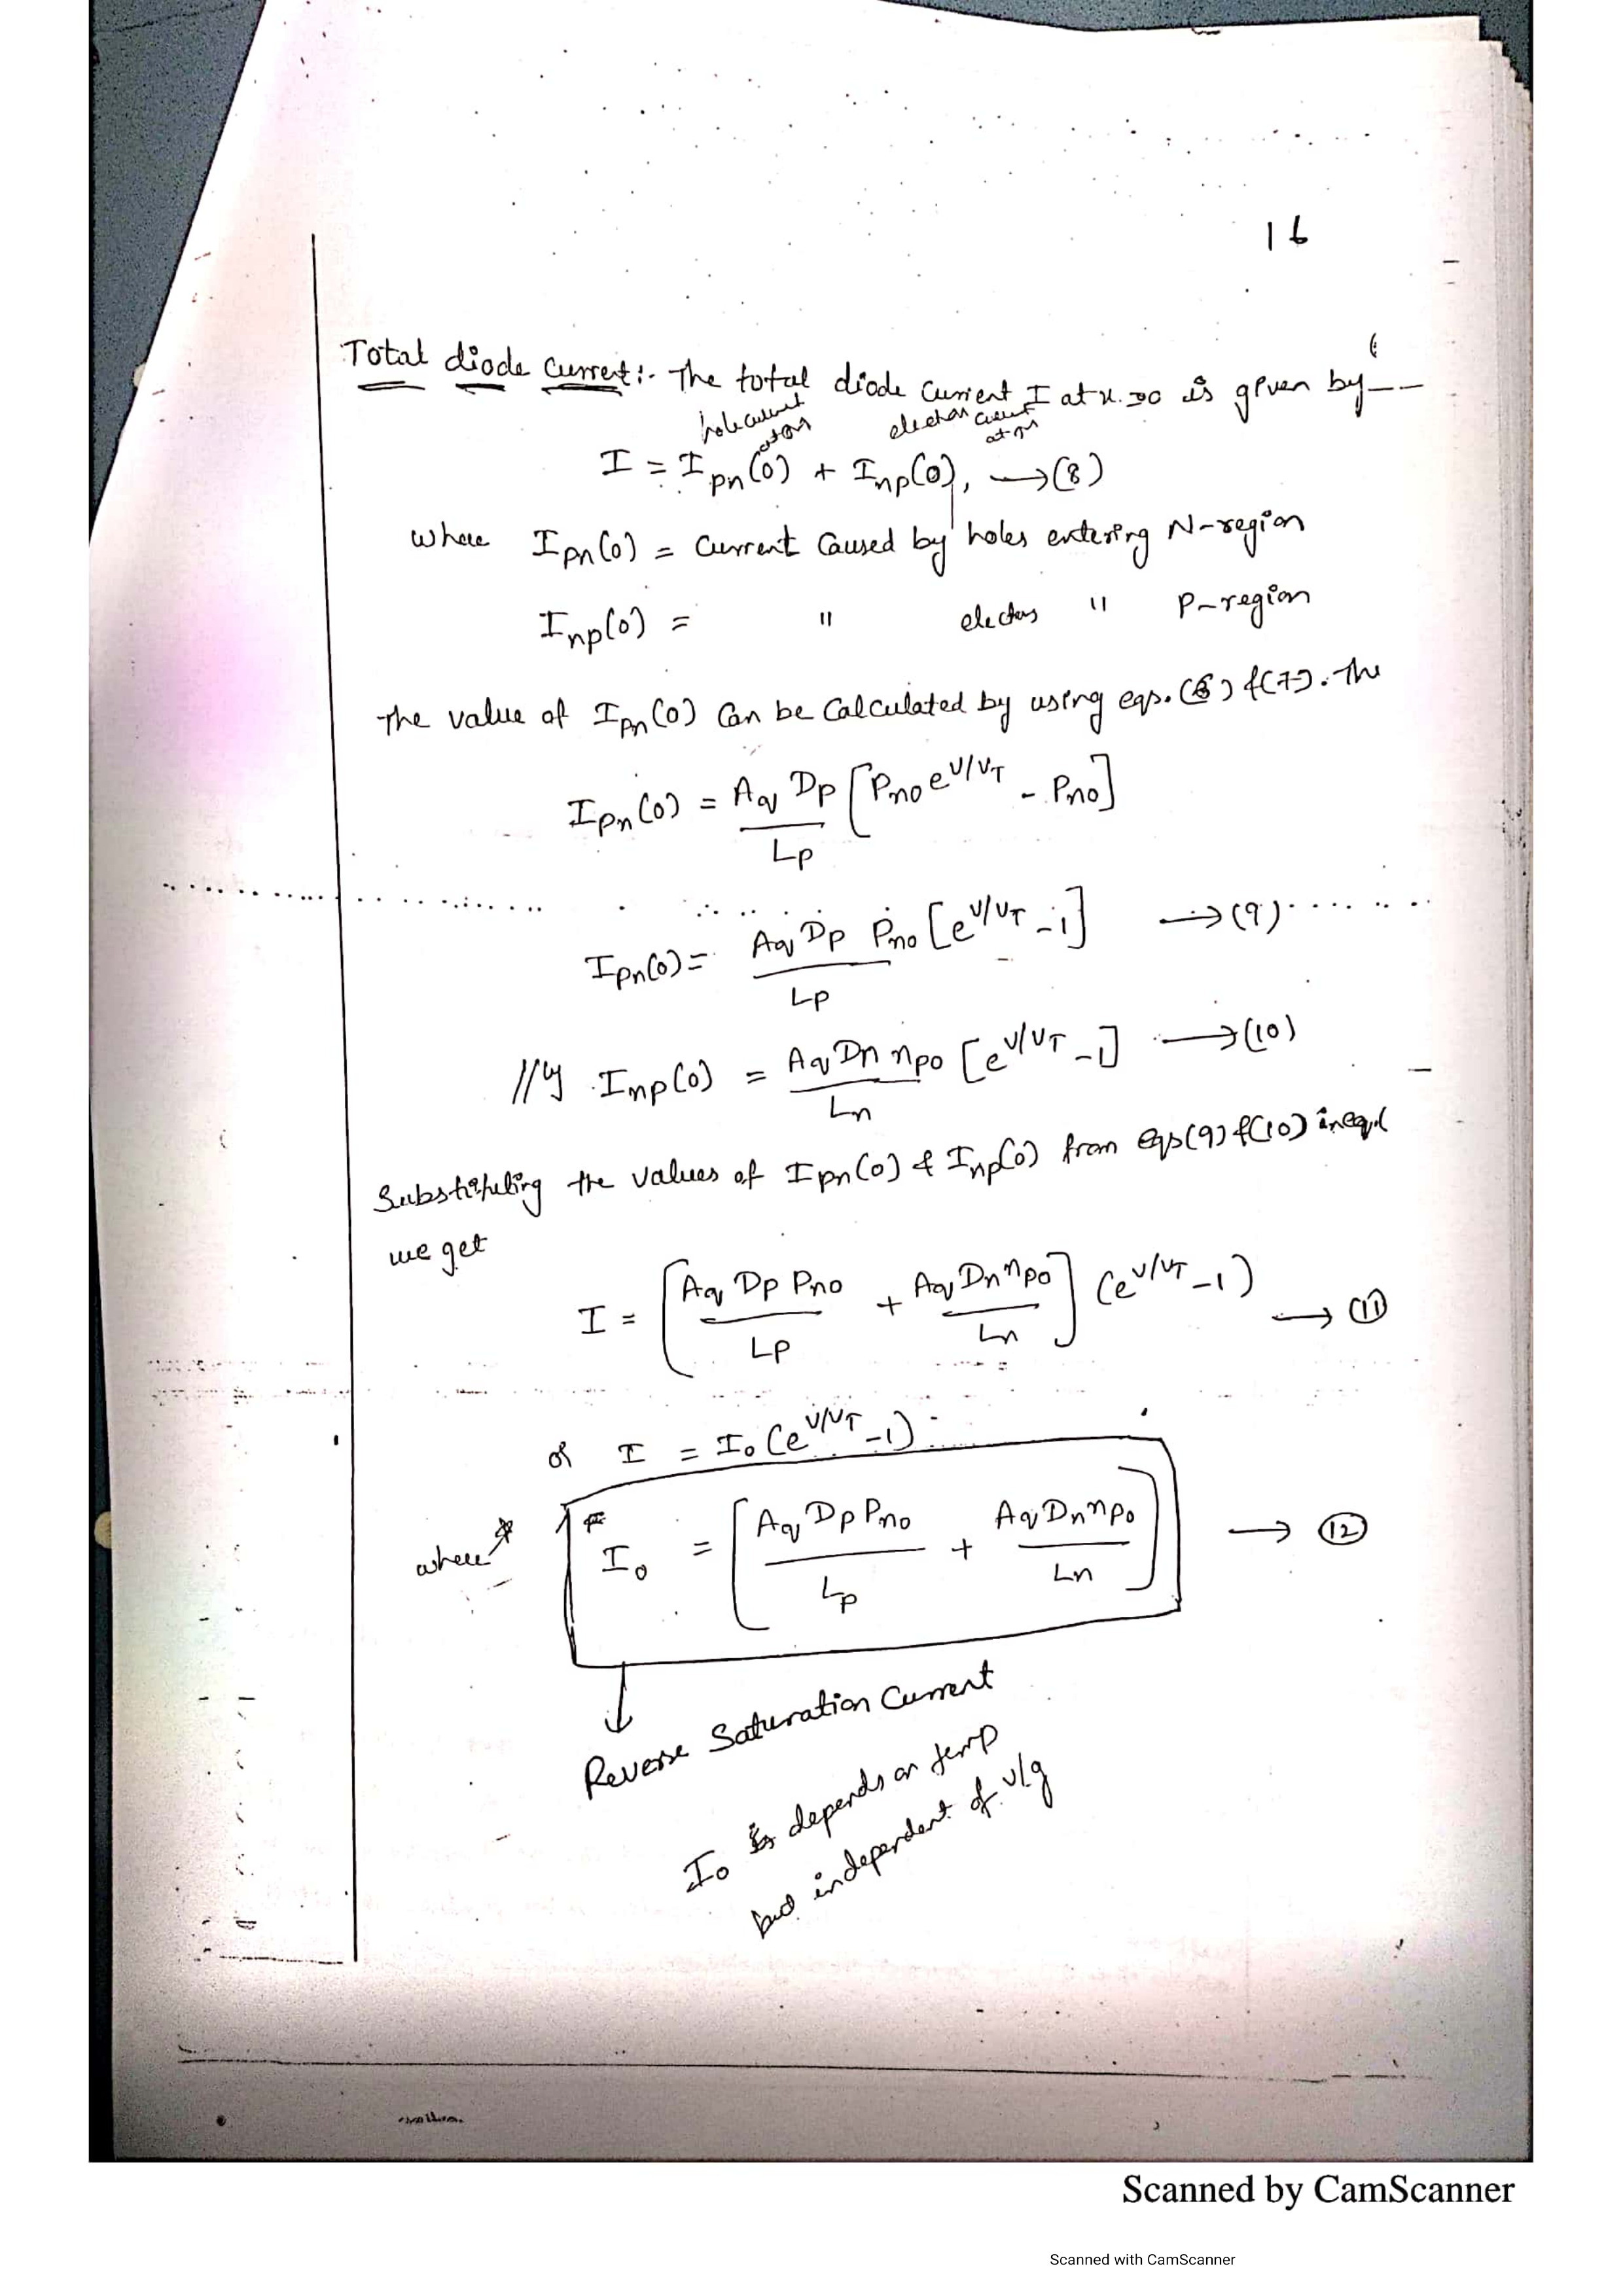 16
Total diode current:- The total diode current I at x=0 is given by --
hole current
electron current
I = Ipn(0) + Inp(0), →(8)
where Ipn(0) = Current Caused by holes entering N-region
Inp(0) = " electrs " P-region
The value of Ipn(0) Can be Calculated by using eqs.(6) &(7). The
Ipn(0) = Aq Dp/Lp [Pno e^V/VT - Pno]
Ipn(0) = Aq Dp Pno/Lp [e^V/VT - 1] →(9)
//ly Inp(0) = Aq Dn npo/Ln [e^V/VT - 1] →(10)
Substituting the values of Ipn(0) & Inp(0) from eqs(9) &(10) in eq.(
we get
I = [Aq Dp Pno/Lp + Aq Dn npo/Ln] (e^V/VT - 1) → (11)
or I = Io (e^V/VT - 1)
where Io = [Aq Dp Pno/Lp + Aq Dn npo/Ln] → (12)
Reverse Saturation Current
Io depends on temp
but independent of v/g
Scanned by CamScanner
Scanned with CamScanner